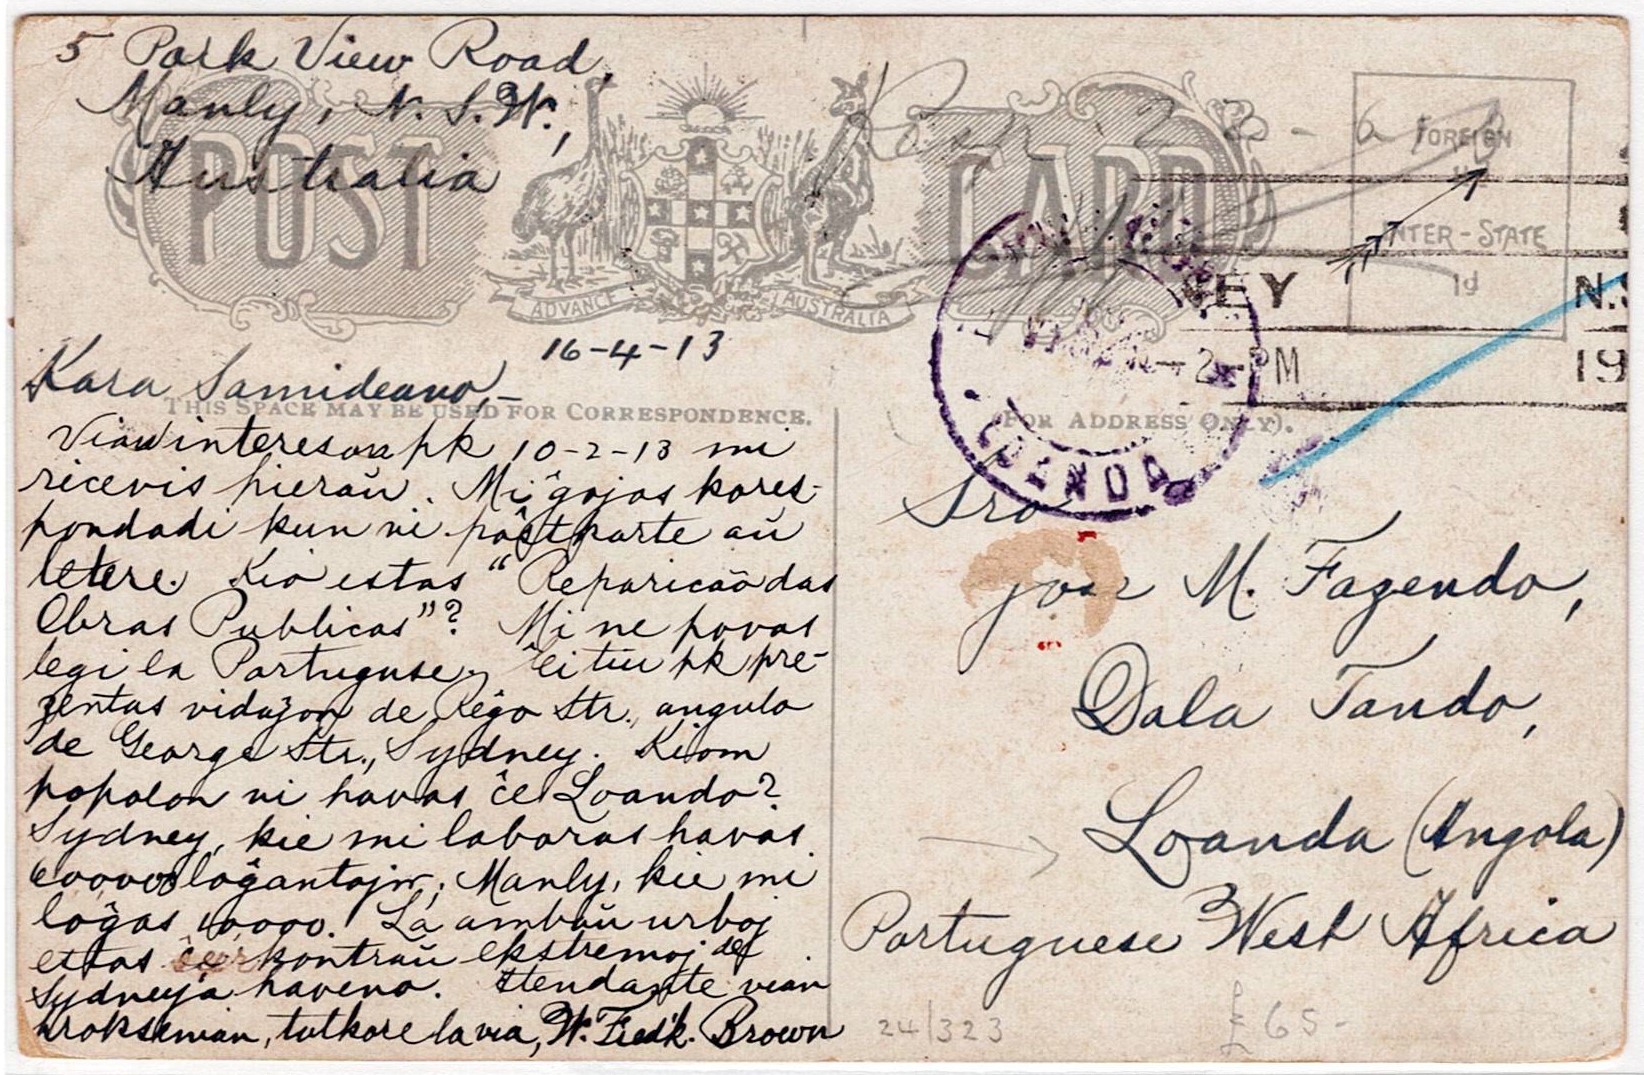 5 Park View Road,
Manly, N. S. W.,
Australia
POST CARD
ADVANCE AUSTRALIA
FOREIGN
INTER-STATE
1d
N.S
2-PM
19
LOANDA
16-4-13
Kara Samideano,-
THIS SPACE MAY BE USED FOR CORRESPONDENCE.
(FOR ADDRESS ONLY).
Vian interesan pk 10-2-13 mi
ricevis hieraŭ. Mi ĝojos kores-
pondadi kun vi poŝtkarte aŭ
letere. Kio estas "Reparicão das
Obras Publicas"? Mi ne povas
legi la Portuguse. Ĉi tiu pk pre-
zentas vidaĵon de Reĝo Str., angulo
de George Str., Sydney. Kiom
popolon vi havas ĉe Loando?
Sydney, kie mi laboras havas
600000 loĝantojn; Manly, kie mi
loĝas 10000. La ambaŭ urboj
estas kontraŭ ekstremoj de
Sydneyja haveno. Atendante vian
proksiman, tutkore la via, W. Fredk. Brown
Sro
Jose M. Fazendo,
Dala Tando,
Loanda (Angola)
Portuguese West Africa
24/323
£65-